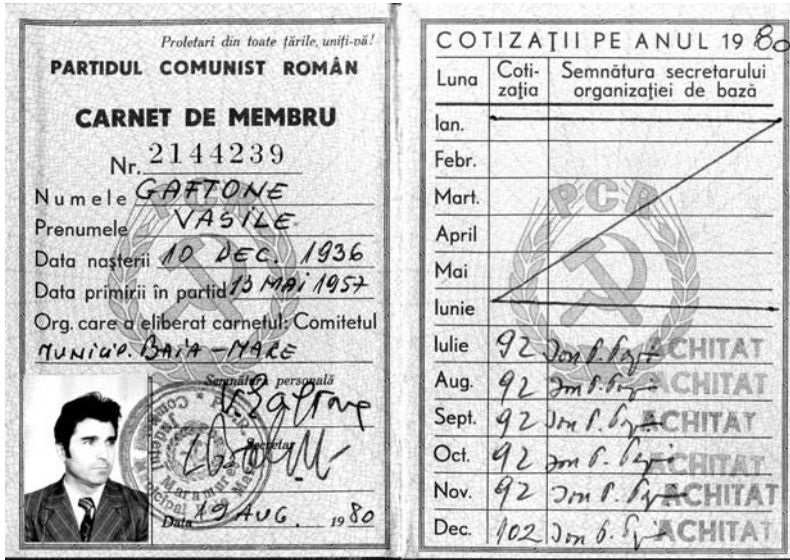 Proletari din toate țările, uniți-vă!
PARTIDUL COMUNIST ROMÂN
CARNET DE MEMBRU
Nr. 2144239
Numele GAFTONE
Prenumele VASILE
Data nașterii 10 DEC. 1936
Data primirii în partid 13 MAI 1957
Org. care a eliberat carnetul: Comitetul
MUNICIP. BAIA-MARE
Semnătura personală
Secretar
Data 19 AUG. 1980
COTIZAȚII PE ANUL 1980
Luna Coti-zația Semnătura secretarului organizației de bază
PCR
Ian.
Febr.
Mart.
April
Mai
Iunie
Iulie 92 ACHITAT
Aug. 92 ACHITAT
Sept. 92 ACHITAT
Oct. 92 ACHITAT
Nov. 92 ACHITAT
Dec. 102 ACHITAT